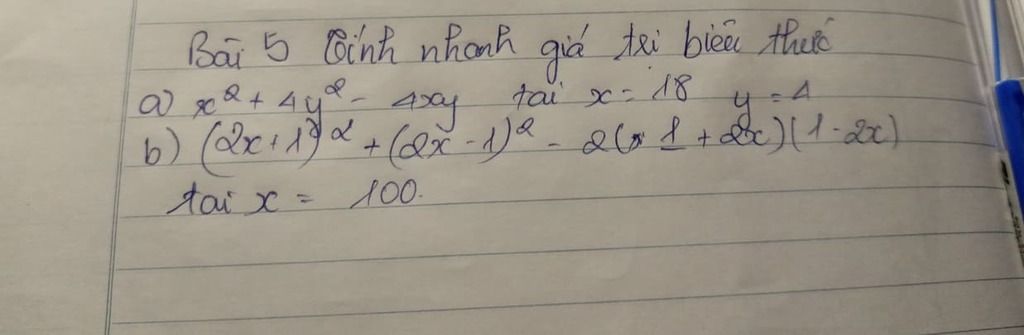 Bài 5 Tính nhanh giá trị biểu thức
a) x² + 4y² - 4xy tại x = 18 y = 4
b) (2x+1)² + (2x-1)² - 2(1 + 2x)(1-2x)
tại x = 100.